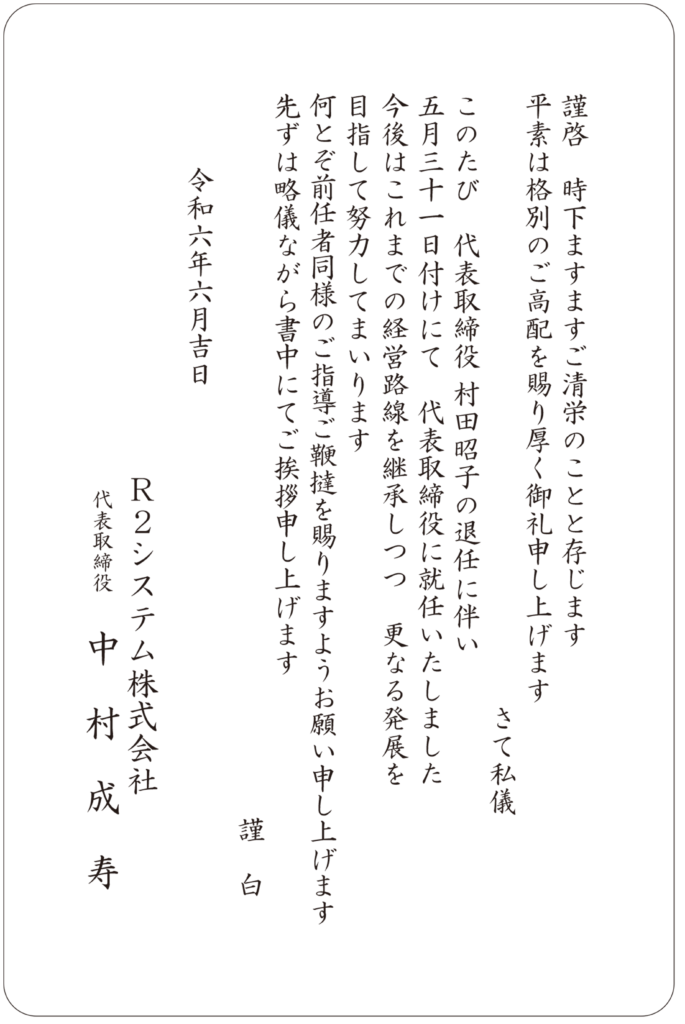 謹啓　時下ますますご清栄のことと存じます
平素は格別のご高配を賜り厚く御礼申し上げます
さて私儀
このたび　代表取締役 村田昭子の退任に伴い
五月三十一日付けにて　代表取締役に就任いたしました
今後はこれまでの経営路線を継承しつつ　更なる発展を
目指して努力してまいります
何とぞ前任者同様のご指導ご鞭撻を賜りますようお願い申し上げます
先ずは略儀ながら書中にてご挨拶申し上げます
謹　白
令和六年六月吉日
Ｒ２システム株式会社
代表取締役　中　村　成　寿